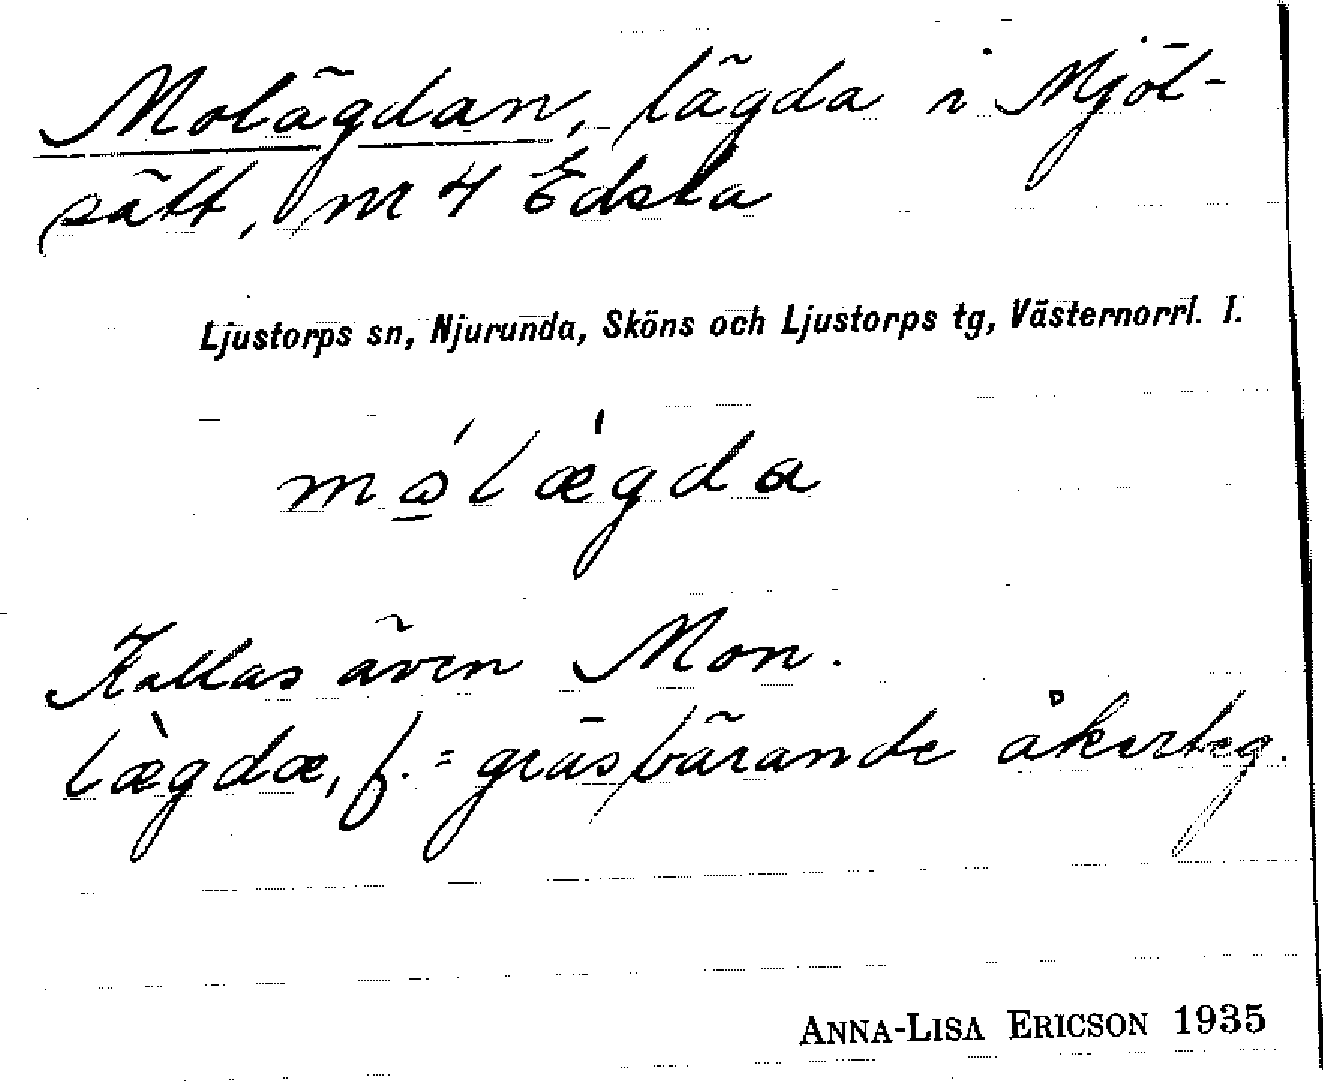 Molägdan, lägda i Mjöl-
sätt, nr 4 Edsta
Ljustorps sn, Njurunda, Sköns och Ljustorps tg, Västernorrl. l.
mó̲læ̀gda
Kallas även Mon.
læ̀gdæ, f. = gräsbärande åkerteg.
ANNA-LISA ERICSON 1935